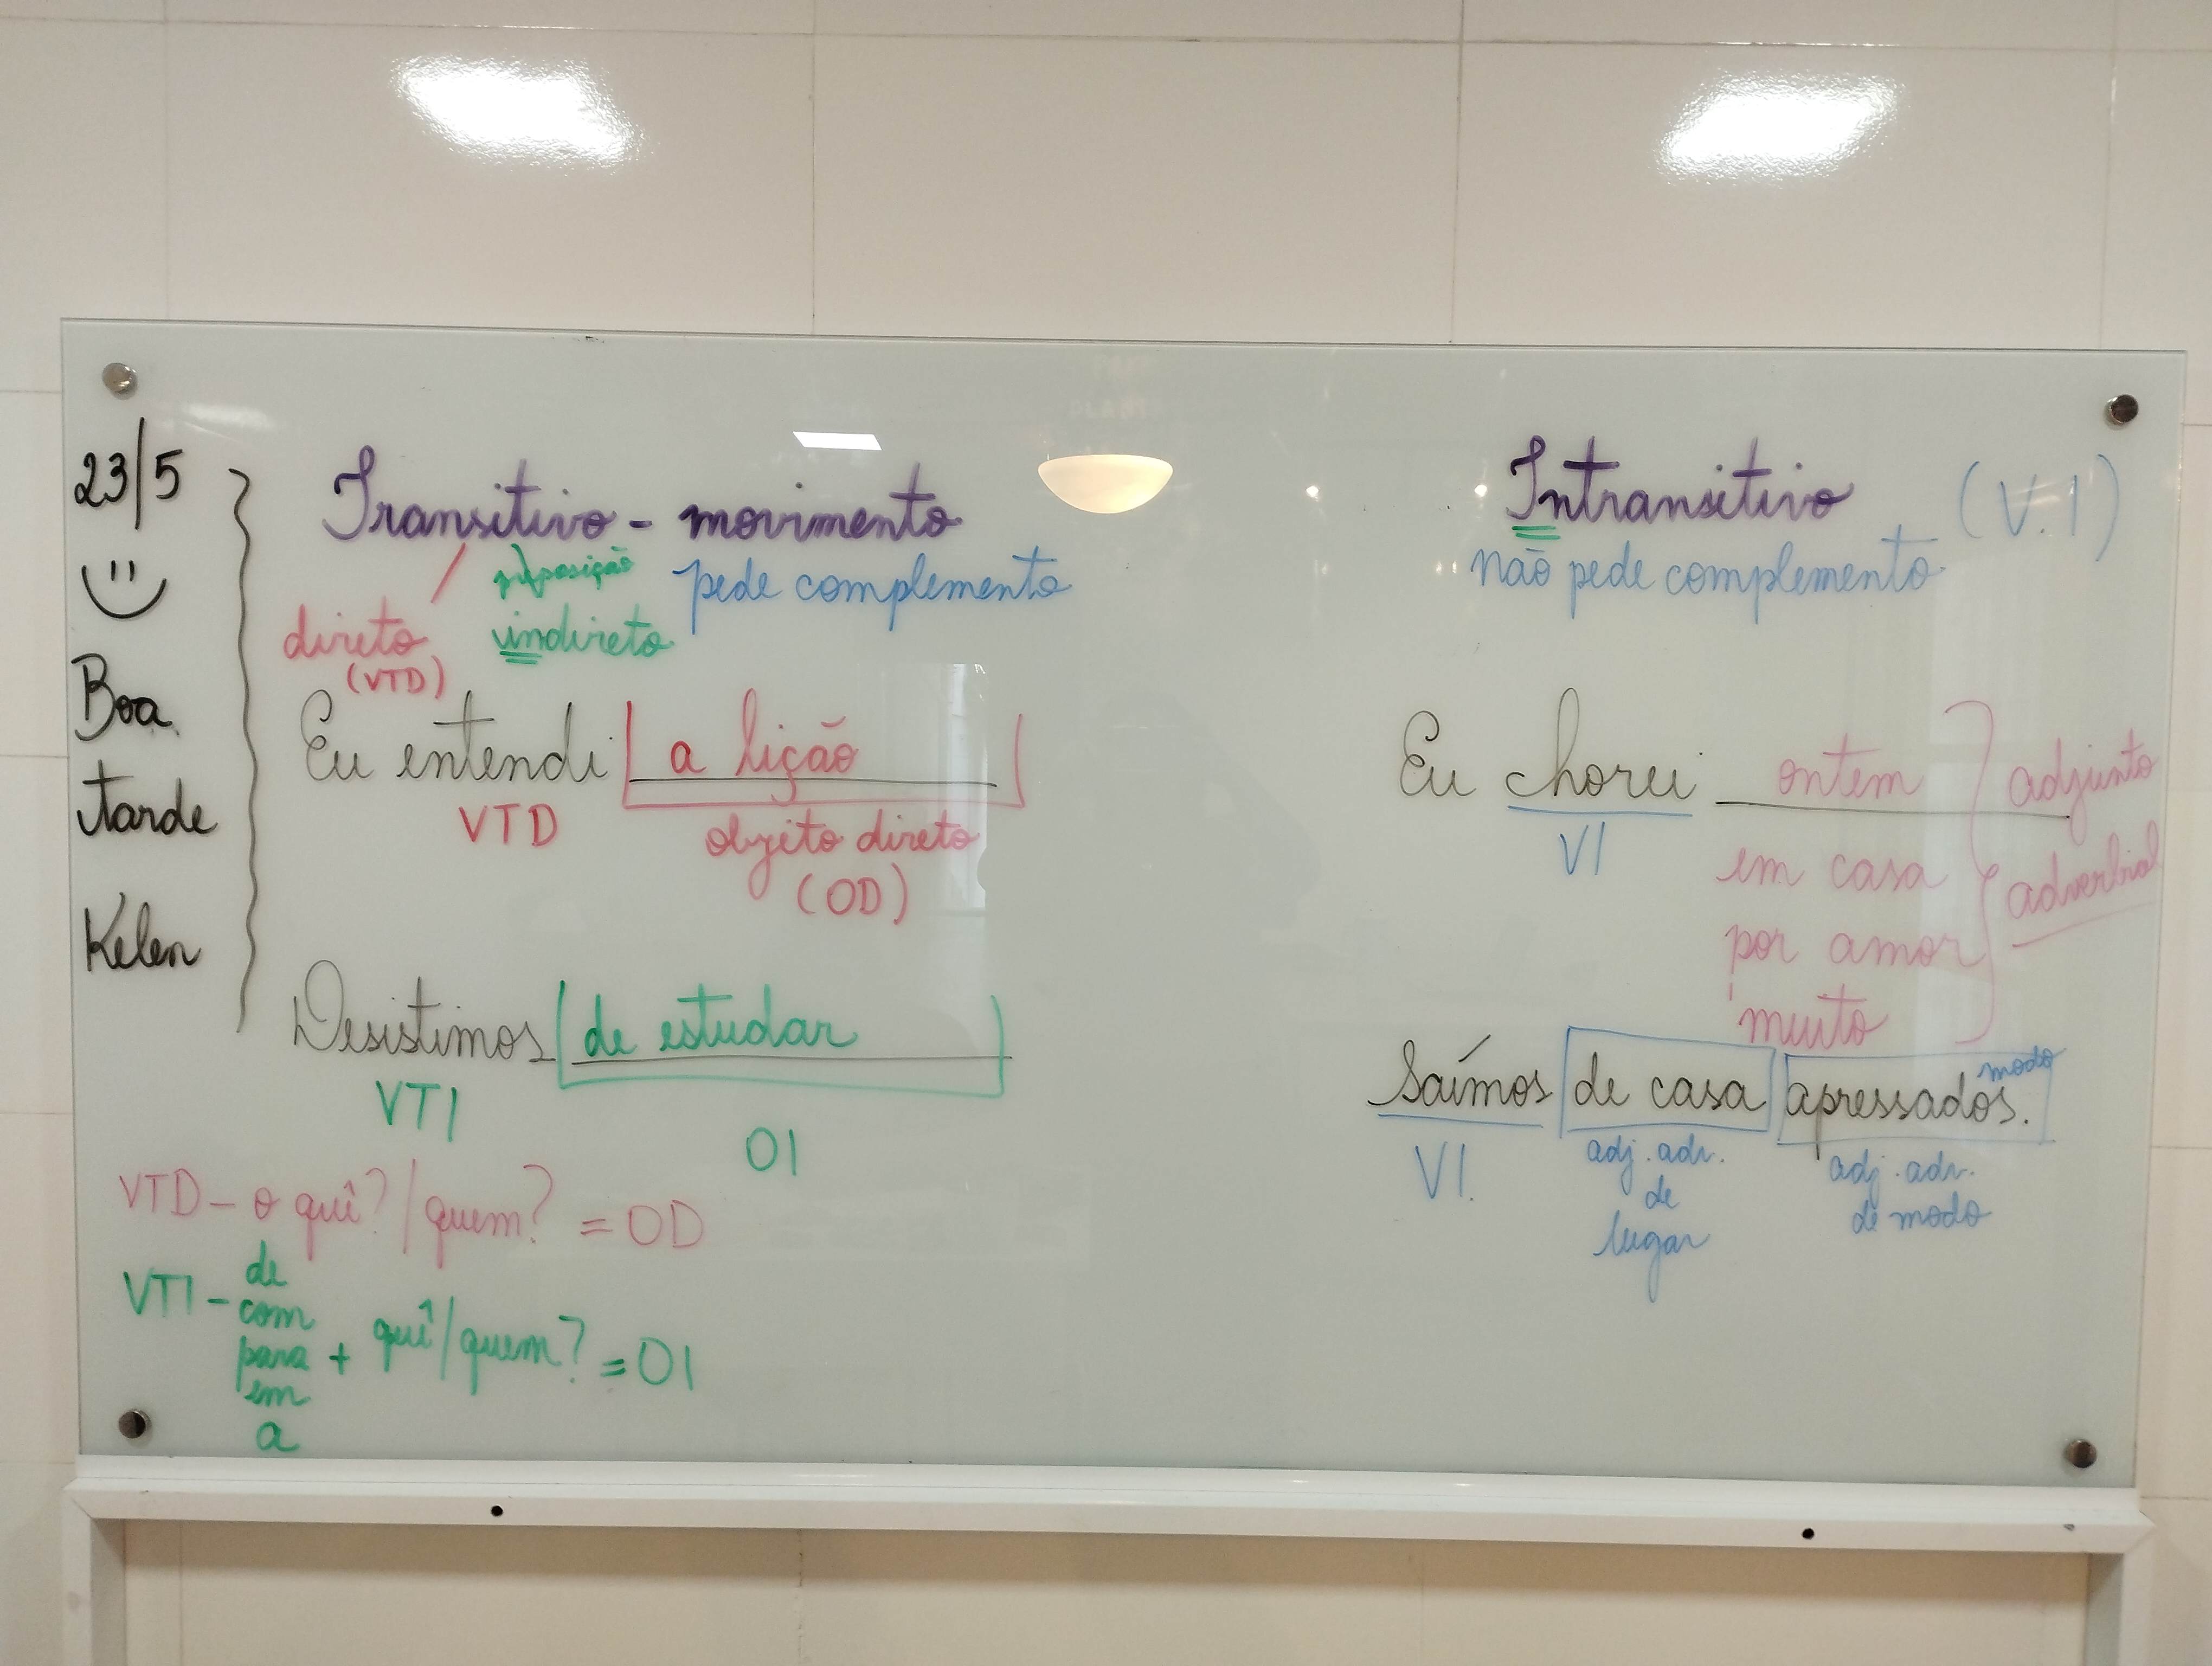 23/5
Boa
Tarde
Kelen
Transitivo - movimento
preposição
pede complemento
direto
indireto
(VTD)
Eu entendi a lição
VTD
objeto direto
(OD)
Desistimos de estudar
VTI
OI
VTD - o quê? / quem? = OD
VTI - de
com
para + quê/quem? = OI
em
a
Intransitivo (V.I)
não pede complemento
Eu chorei ontem
VI
em casa
por amor
muito
adjunto
adverbial
Saímos de casa apressados.
modo
VI.
adj. adv.
de
lugar
adj. adv.
de modo